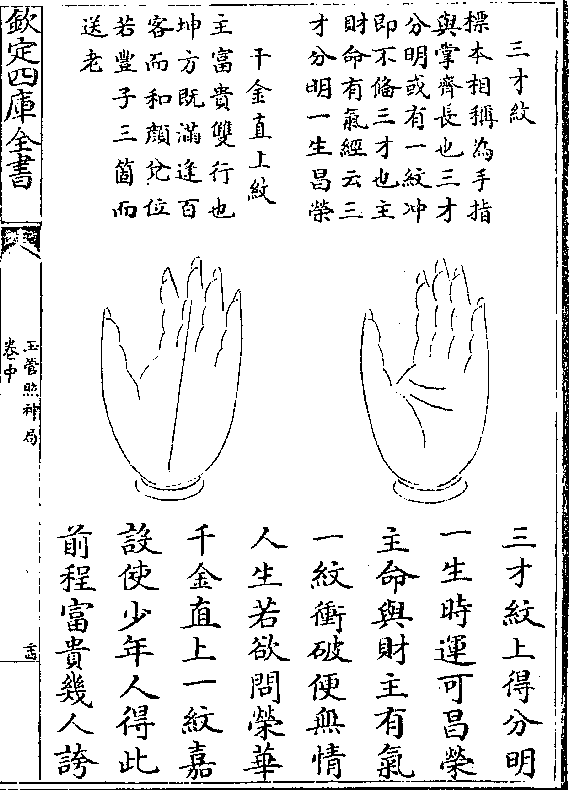 三才紋
標本相稱為手指
與掌齊長也三才
分明或有一紋冲
即不條三才也主
財命有氣經云三
才分明一生昌榮
千金直上紋
主富貴雙行也
坤方既滿逢百
客而和顔兌位
若豐子三箇而
送老
三才紋上得分明
一生時運可昌榮
主命與財主有氣
一紋衝破便無情
人生若欲問榮華
千金直上一紋嘉
設使少年人得此
前程富貴幾人誇
欽定四庫全書
玉管照神局
卷中